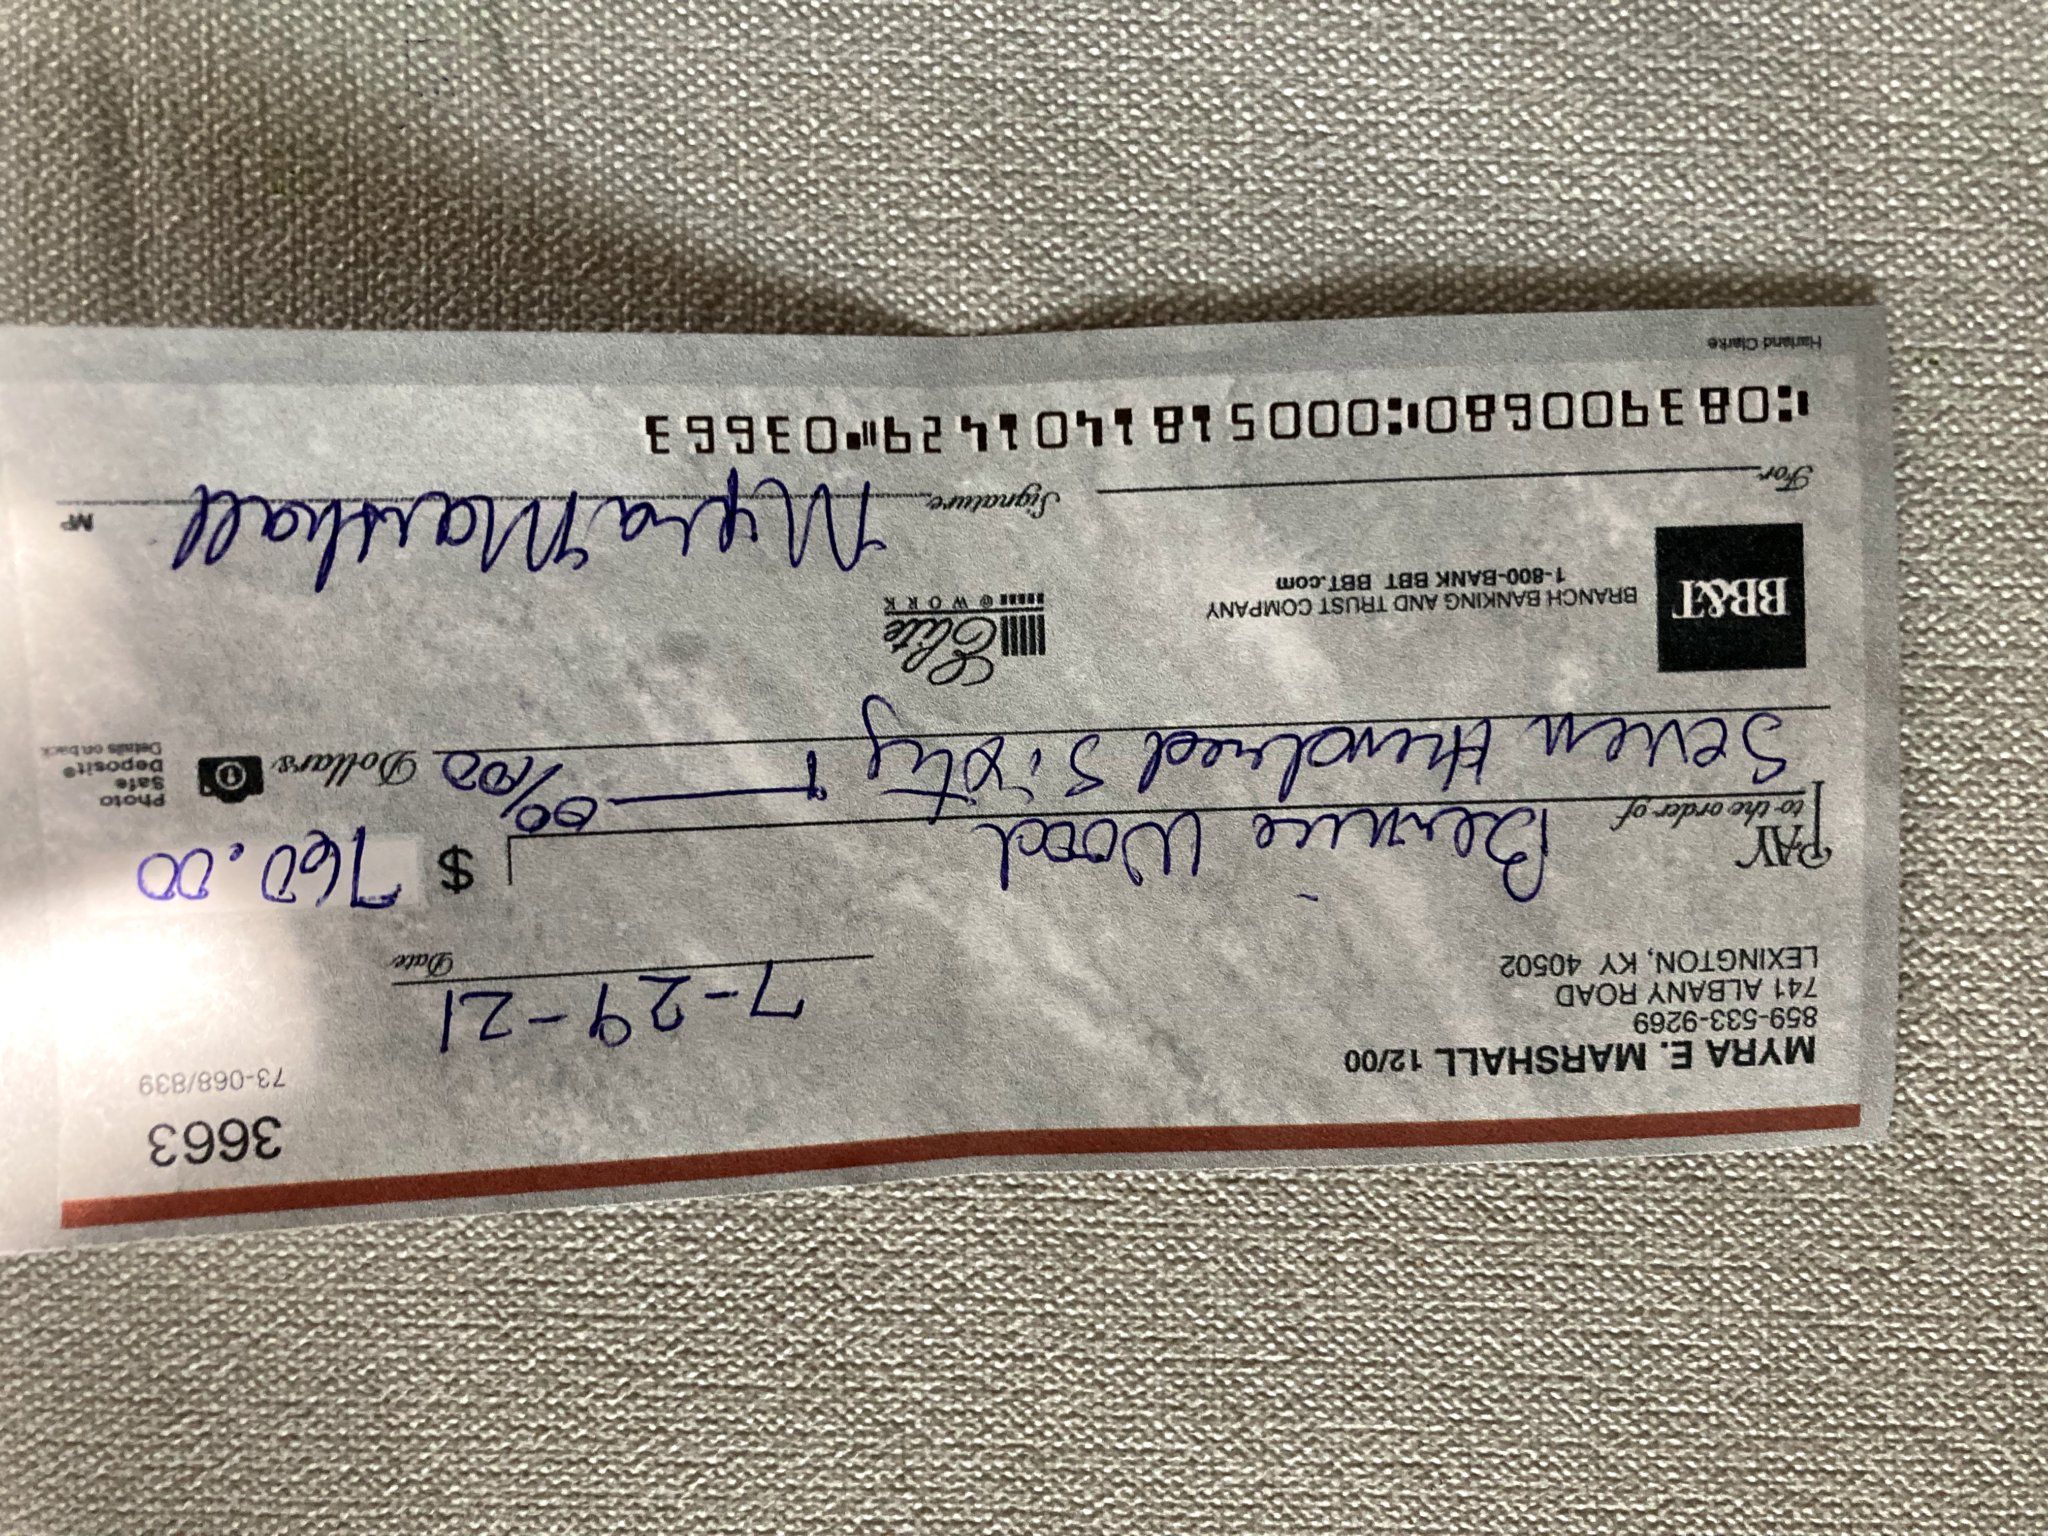 3663
73-068/839
MYRA E. MARSHALL 12/00
859-533-9269
741 ALBANY ROAD
LEXINGTON, KY 40502
7-29-21
Date
PAY
to the order of
Bernice Wood
$ 760.00
Seven Hundred Sixty + 00/100 Dollars
Photo
Safe
Deposit®
Details on back
BB&T
BRANCH BANKING AND TRUST COMPANY
1-800-BANK BBT BBT.com
Elite
@ WORK
For
Signature Myra Marshall
MP
⑆083900680⑆0005181401429⑈03663
Harland Clarke